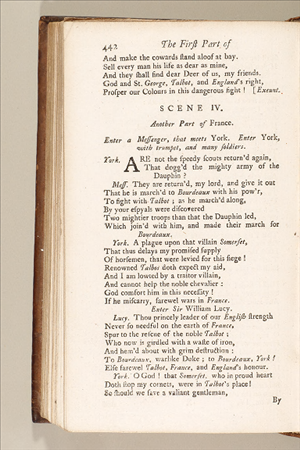 442 The First Part of
And make the cowards stand aloof at bay.
Sell every man his life as dear as mine,
And they shall find dear Deer of us, my friends.
God and St. George, Talbot, and England's right,
Prosper our Colours in this dangerous fight! [Exeunt.
SCENE IV.
Another Part of France.
Enter a Messenger, that meets York. Enter York,
with trumpet, and many soldiers.
York. ARE not the speedy scouts return'd again,
That dogg'd the mighty army of the
Dauphin?
Mess. They are return'd, my lord, and give it out
That he is march'd to Bourdeaux with his pow'r,
To fight with Talbot; as he march'd along,
By your espyals were discovered
Two mightier troops than that the Dauphin led,
Which join'd with him, and made their march for
Bourdeaux.
York. A plague upon that villain Somerset,
That thus delays my promised supply
Of horsemen, that were levied for this siege!
Renowned Talbot doth expect my aid,
And I am lowted by a traitor villain,
And cannot help the noble chevalier:
God comfort him in this necessity!
If he miscarry, farewel wars in France.
Enter Sir William Lucy.
Lucy. Thou princely leader of our English strength
Never so needful on the earth of France,
Spur to the rescue of the noble Talbot;
Who now is girdled with a waste of iron,
And hem'd about with grim destruction:
To Bourdeaux, warlike Duke; to Bourdeaux, York!
Else farewel Talbot, France, and England's honour.
York. O God! that Somerset, who in proud heart
Doth stop my cornets, were in Talbot's place!
So should we save a valiant gentleman,
By